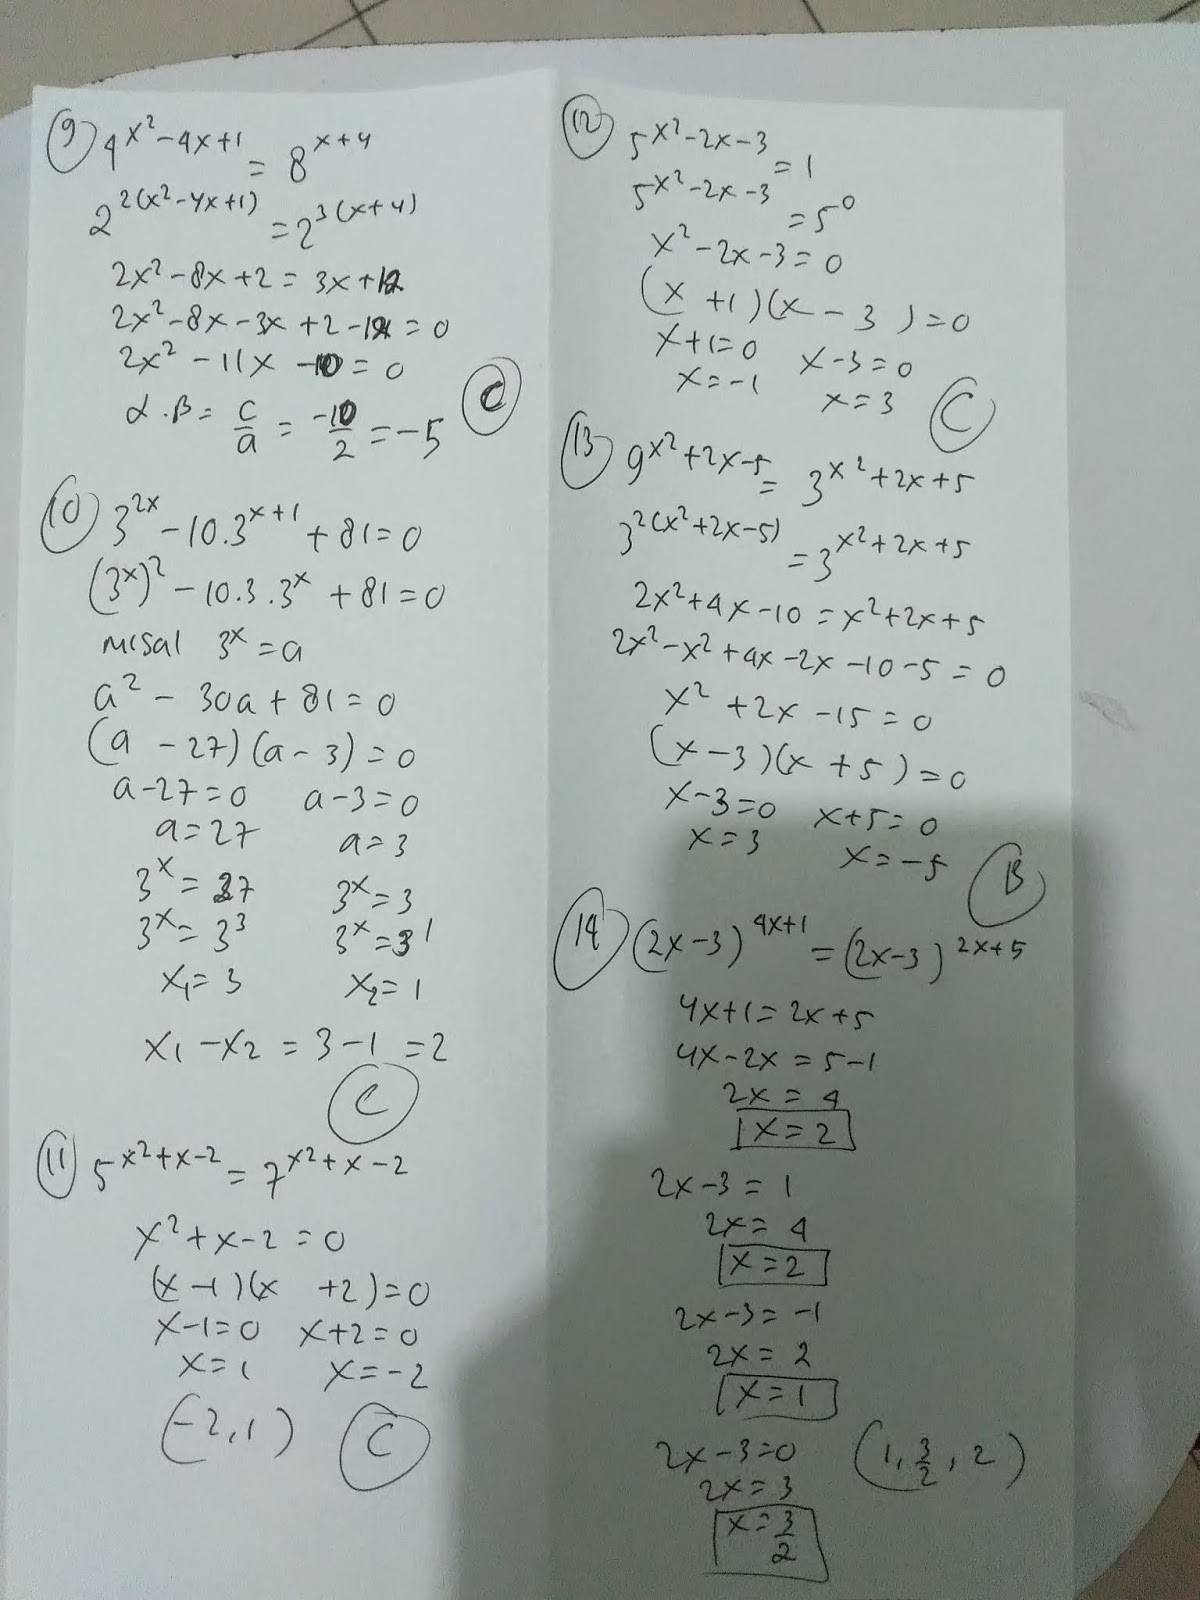 9) 4^{x²-4x+1} = 8^{x+4}
2^{2(x²-4x+1)} = 2^{3(x+4)}
2x²-8x+2 = 3x+12
2x²-8x-3x+2-12=0
2x²-11x-10=0
α.β = c/a = -10/2 = -5
C
10) 3^{2x} - 10.3^{x+1} + 81=0
(3^x)² - 10.3.3^x + 81=0
misal 3^x = a
a² - 30a + 81=0
(a - 27)(a - 3)=0
a-27=0 a-3=0
a=27 a=3
3^x=27 3^x=3
3^x=3³ 3^x=3¹
x₁=3 x₂=1
x₁-x₂ = 3-1 =2
C
11) 5^{x²+x-2} = 7^{x²+x-2}
x²+x-2=0
(x-1)(x+2)=0
x-1=0 x+2=0
x=1 x=-2
(-2,1) C
12) 5^{x²-2x-3} = 1
5^{x²-2x-3} = 5⁰
x²-2x-3=0
(x+1)(x-3)=0
x+1=0 x-3=0
x=-1 x=3
C
13) 9^{x²+2x-5} = 3^{x²+2x+5}
3^{2(x²+2x-5)} = 3^{x²+2x+5}
2x²+4x-10 = x²+2x+5
2x²-x²+4x-2x-10-5=0
x²+2x-15=0
(x-3)(x+5)=0
x-3=0 x+5=0
x=3 x=-5
B
14) (2x-3)^{4x+1} = (2x-3)^{2x+5}
4x+1=2x+5
4x-2x=5-1
2x=4
x=2
2x-3=1
2x=4
x=2
2x-3=-1
2x=2
x=1
2x-3=0 (1, 3/2, 2)
2x=3
x=3/2